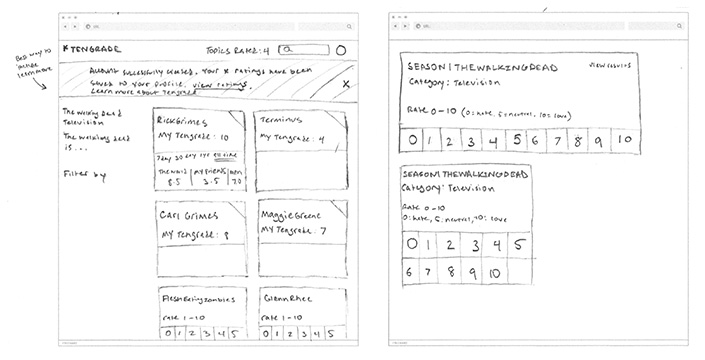 Bad way to
include
learn more
URL
TENGRADE
TOPICS RATED: 4
ACCOUNT SUCCESSFULLY CREATED. YOUR X RATINGS HAVE BEEN
SAVED TO YOUR PROFILE. VIEW RATINGS.
LEARN MORE ABOUT TENGRADE
X
The Walking Dead
Television
The Walking Dead
is...
Filter by
RICK GRIMES
MY TENGRADE: 10
7 day 30 day 1 yr all time
The World
8.5
My Friends
3.5
Men
7.0
Terminus
MY TENGRADE: 4
CARL GRIMES
MY TENGRADE: 8
Maggie Greene
MY TENGRADE: 7
Flesh Eating Zombies
rate 1-10
0 1 2 3 4 5
Glenn Rhee
rate 1-10
0 1 2 3 4 5
URL
SEASON 1 THE WALKING DEAD
VIEW RESULTS
Category: Television
Rate 0-10 (0=hate, 5=neutral, 10=love)
0 1 2 3 4 5 6 7 8 9 10
SEASON 1 THE WALKING DEAD
Category: Television
Rate 0-10
0: hate, 5: neutral, 10: love
0 1 2 3 4 5
6 7 8 9 10